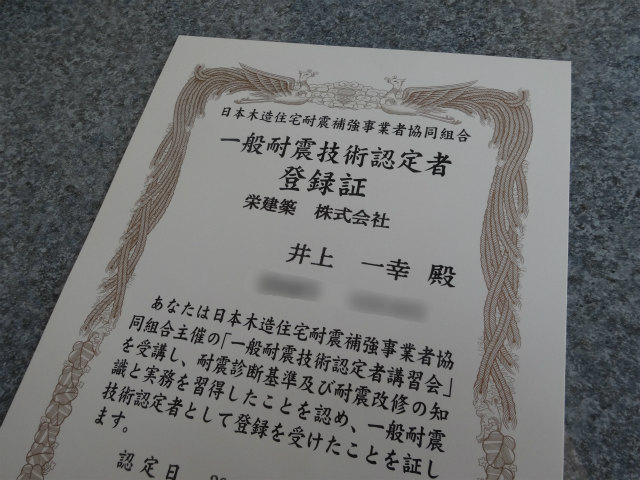 日本木造住宅耐震補強事業者協同組合
一般耐震技術認定者
登録証
栄建築 株式会社
井上 一幸 殿
あなたは日本木造住宅耐震補強事業者協
同組合主催の「一般耐震技術認定者講習会」
を受講し、耐震診断基準及び耐震改修の知
識と実務を習得したことを認め、一般耐震
技術認定者として登録を受けたことを証し
ます。
認定日